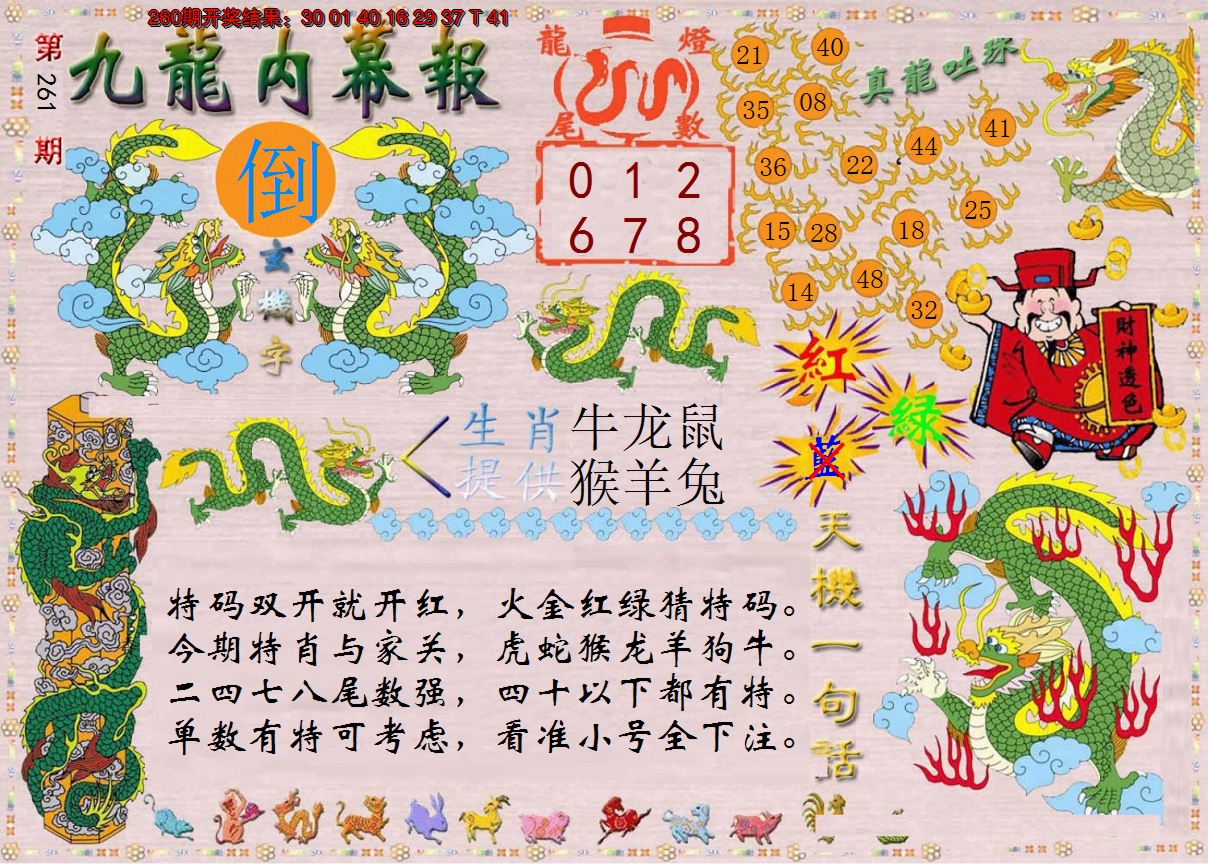 260期开奖结果：30 01 40 16 29 37 T 41
第261期
九龍内幕報
倒
玄機字
龍燈
尾數
0 1 2
6 7 8
真龍吐珠
21 40
35 08
44 41
36 22
25
15 28 18
14 48
32
財神透色
紅
绿
藍
生肖 牛龙鼠
提供 猴羊兔
天機一句話
特码双开就开红，火金红绿猜特码。
今期特肖与家关，虎蛇猴龙羊狗牛。
二四七八尾数强，四十以下都有特。
单数有特可考虑，看准小号全下注。